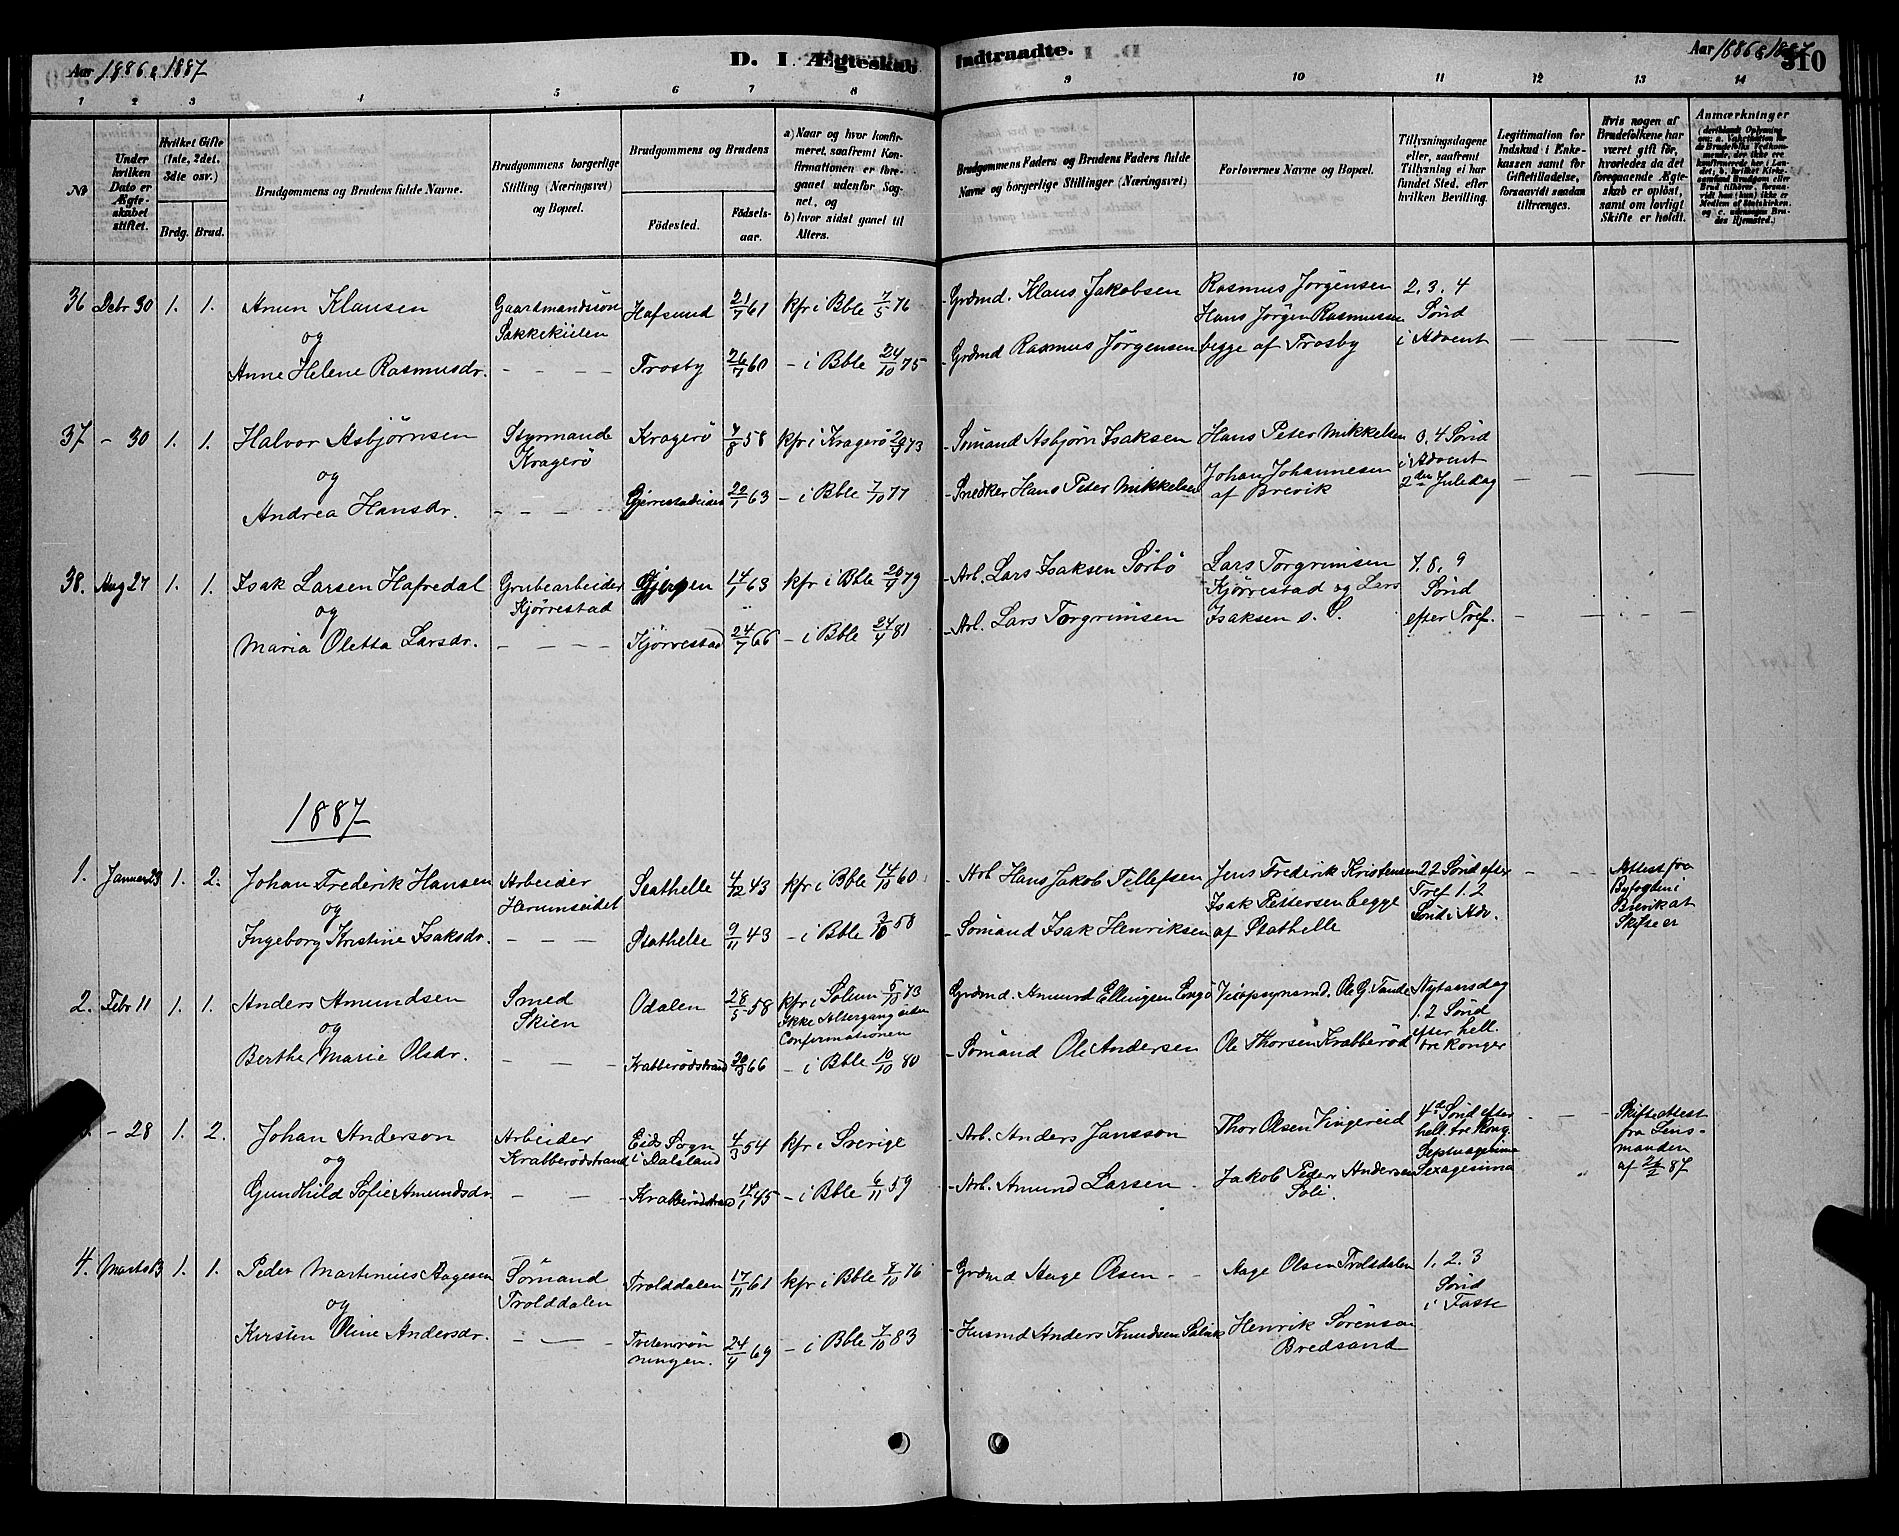 Aar 1886 & 1887
D. I Ægteskab Indtraadte.
Aar 1886 & 1887
310
1 2 3 4 5 6 7 8 9 10 11 12 13 14
No
Under hvilken Dato er Ægteskabet stiftet.
Hvilket Gifte (1ste, 2det, 3die osv.)
Brdg. Brud.
Brudgommens og Brudens fulde Navne.
Brudgommens borgerlige Stilling (Næringsvei) og Bopæl.
Brudgommens og Brudens
Fødested.
Fødsels-aar.
a) Naar og hvor konfirmeret, saafremt Konfirmationen er foregaaet udenfor Sognet, og
b) hvor sidst gaaet til Alters.
Brudgommens Faders og Brudens Faders fulde Navne og borgerlige Stillinger (Næringsvei)
Forlovernes Navne og Bopæl.
Tillysningsdagene eller, saafremt Tillysning ei har fundet Sted, efter hvilken Bevilling.
Legitimation for Indskud i Enkekassen samt for Giftetilladelse, forsaavidt saadan tiltrænges.
Hvis nogen af Brudefolkene har været gift før, hvorledes da det foregaaende Ægteskab er opløst, samt om lovligt Skifte er holdt.
Anmærkninger
36 Decbr 30 1. 1. Anun Klausen
Gaardmandssøn
Sakkekiilen
Hafsund 21/7 61 kfr i Bble 7/5 76
- Grdmd. Klaus Jakobsen
Rasmus Jørgensen
Hans Jørgen Rasmussen
begge af Trosby
2. 3. 4
Sønd
i Advent
og
Anne Helene Rasmusdr.
Trosby 26/7 60 - i Bble 24/10 75
- Grdmd Rasmus Jørgensen
37 - 30 1. 1. Halvor Asbjørnsen
Styrmand
Kragerø
Kragerø 7/8 58 kfr i Kragerø 73
- Sømand Asbjørn Isaksen
Hans Peter Mikkelsen
Johan Johannesen
af Brevik
3. 4 Sønd
i Advent
2den Juledag
og
Andrea Hansdr.
63 - i Bble 7/10 77
- Snedker Hans Peter Mikkelsen
38. Aug 27 1. 1. Isak Larsen Hafredal
Grubearbeider
Kjørrestad
Gjerpen 14/1 63 kfr i Bble 79
- Arb. Lars Isaksen Sørbø
Lars Torgrimsen
Kjørrestad og Lars
Isaksen s. S.
7. 8. 9
Sønd
efter Tref.
og
Maria Oletta Larsdr.
Kjørrestad 24/7 66 - i Bble 24/4 81
- Arb. Lars Torgrimsen
1887
1. Januar 23 1. 2. Johan Frederik Hansen
Arbeider
Herumseidet
Stathelle 4/12 43 kfr i Bble 14/10 60
- Arb Hans Jakob Tellefsen
Jens Frederik Kristensen
Isak Pettersen begge
af Stathelle
22 Sønd efter
Tref 1. 2
Sønd i Adv.
Attest fra
Byfogden i
Brevik at
Skifte er
og
Ingeborg Kristine Isaksdr.
Stathelle 9/11 43 - i Bble 3/10 58
- Sømand Isak Henriksen
2. Febr 11 1. 1. Anders Amundsen
Smed
Skien
Odalen 28/5 58 kfr i Solum 5/10 73
Ikke Altergang siden
Confirmationen
Grdmd. Amund Ellingsen
Ole G. Tande
Ole Thorsen Krabberød
Nytaarsdag
1. 2 Sønd
efter hell.
tre Konger
og
Berthe Marie Olsdr.
Krabberødstrand 66 - i Bble 10/10 80
- Sømand Ole Andersen
- 28 1. 2. Johan Anderson
Arbeider
Krabberødstrand
Eids Sogn
i Dalsland
4/3 54 kfr i Sverige
- Arb. Anders Jansson
Thor Olsen Vingereid
Jakob Peder Andersen
4de Sønd efter
hell. tre Kong.
Septuagesima
Sexagesima
Skifteattest
fra Lens-
manden
af 24/2 87
og
Gundhild Sofie Amundsdr.
Krabberødstrand 14/1 45 - i Bble 6/11 59
- Arb. Amund Larsen
4. Marts 13 1. 1. Peder Martinius Aagesen
Sømand
Trolddalen
Trolddalen 17/11 61 kfr i Bble 8/10 76
- Grdmd Aage Olsen
Aage Olsen Trolddalen
Henrik Sørenson
Bredsand
1. 2. 3
Sønd
i Faste
og
Kirsten Oline Andersdr.
24/4 69 - i Bble 7/10 83
- Husmd Anders Knudsen